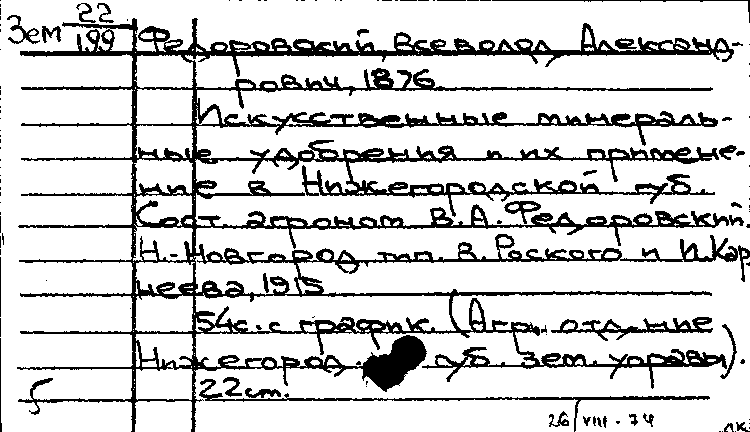 Зем 22/199
Федоровский, Всеволод Александ-
рович, 1876.
Искусственные минераль-
ные удобрения и их примене-
ние в Нижегородской губ.
Сост. агроном В.А. Федоровский.
Н.-Новгород, тип. В. Роского и И. Кар
неева, 1915
54с. с график. (Агр. отд-ние
Нижегород. губ. зем. управы).
22см.
26/VIII-74